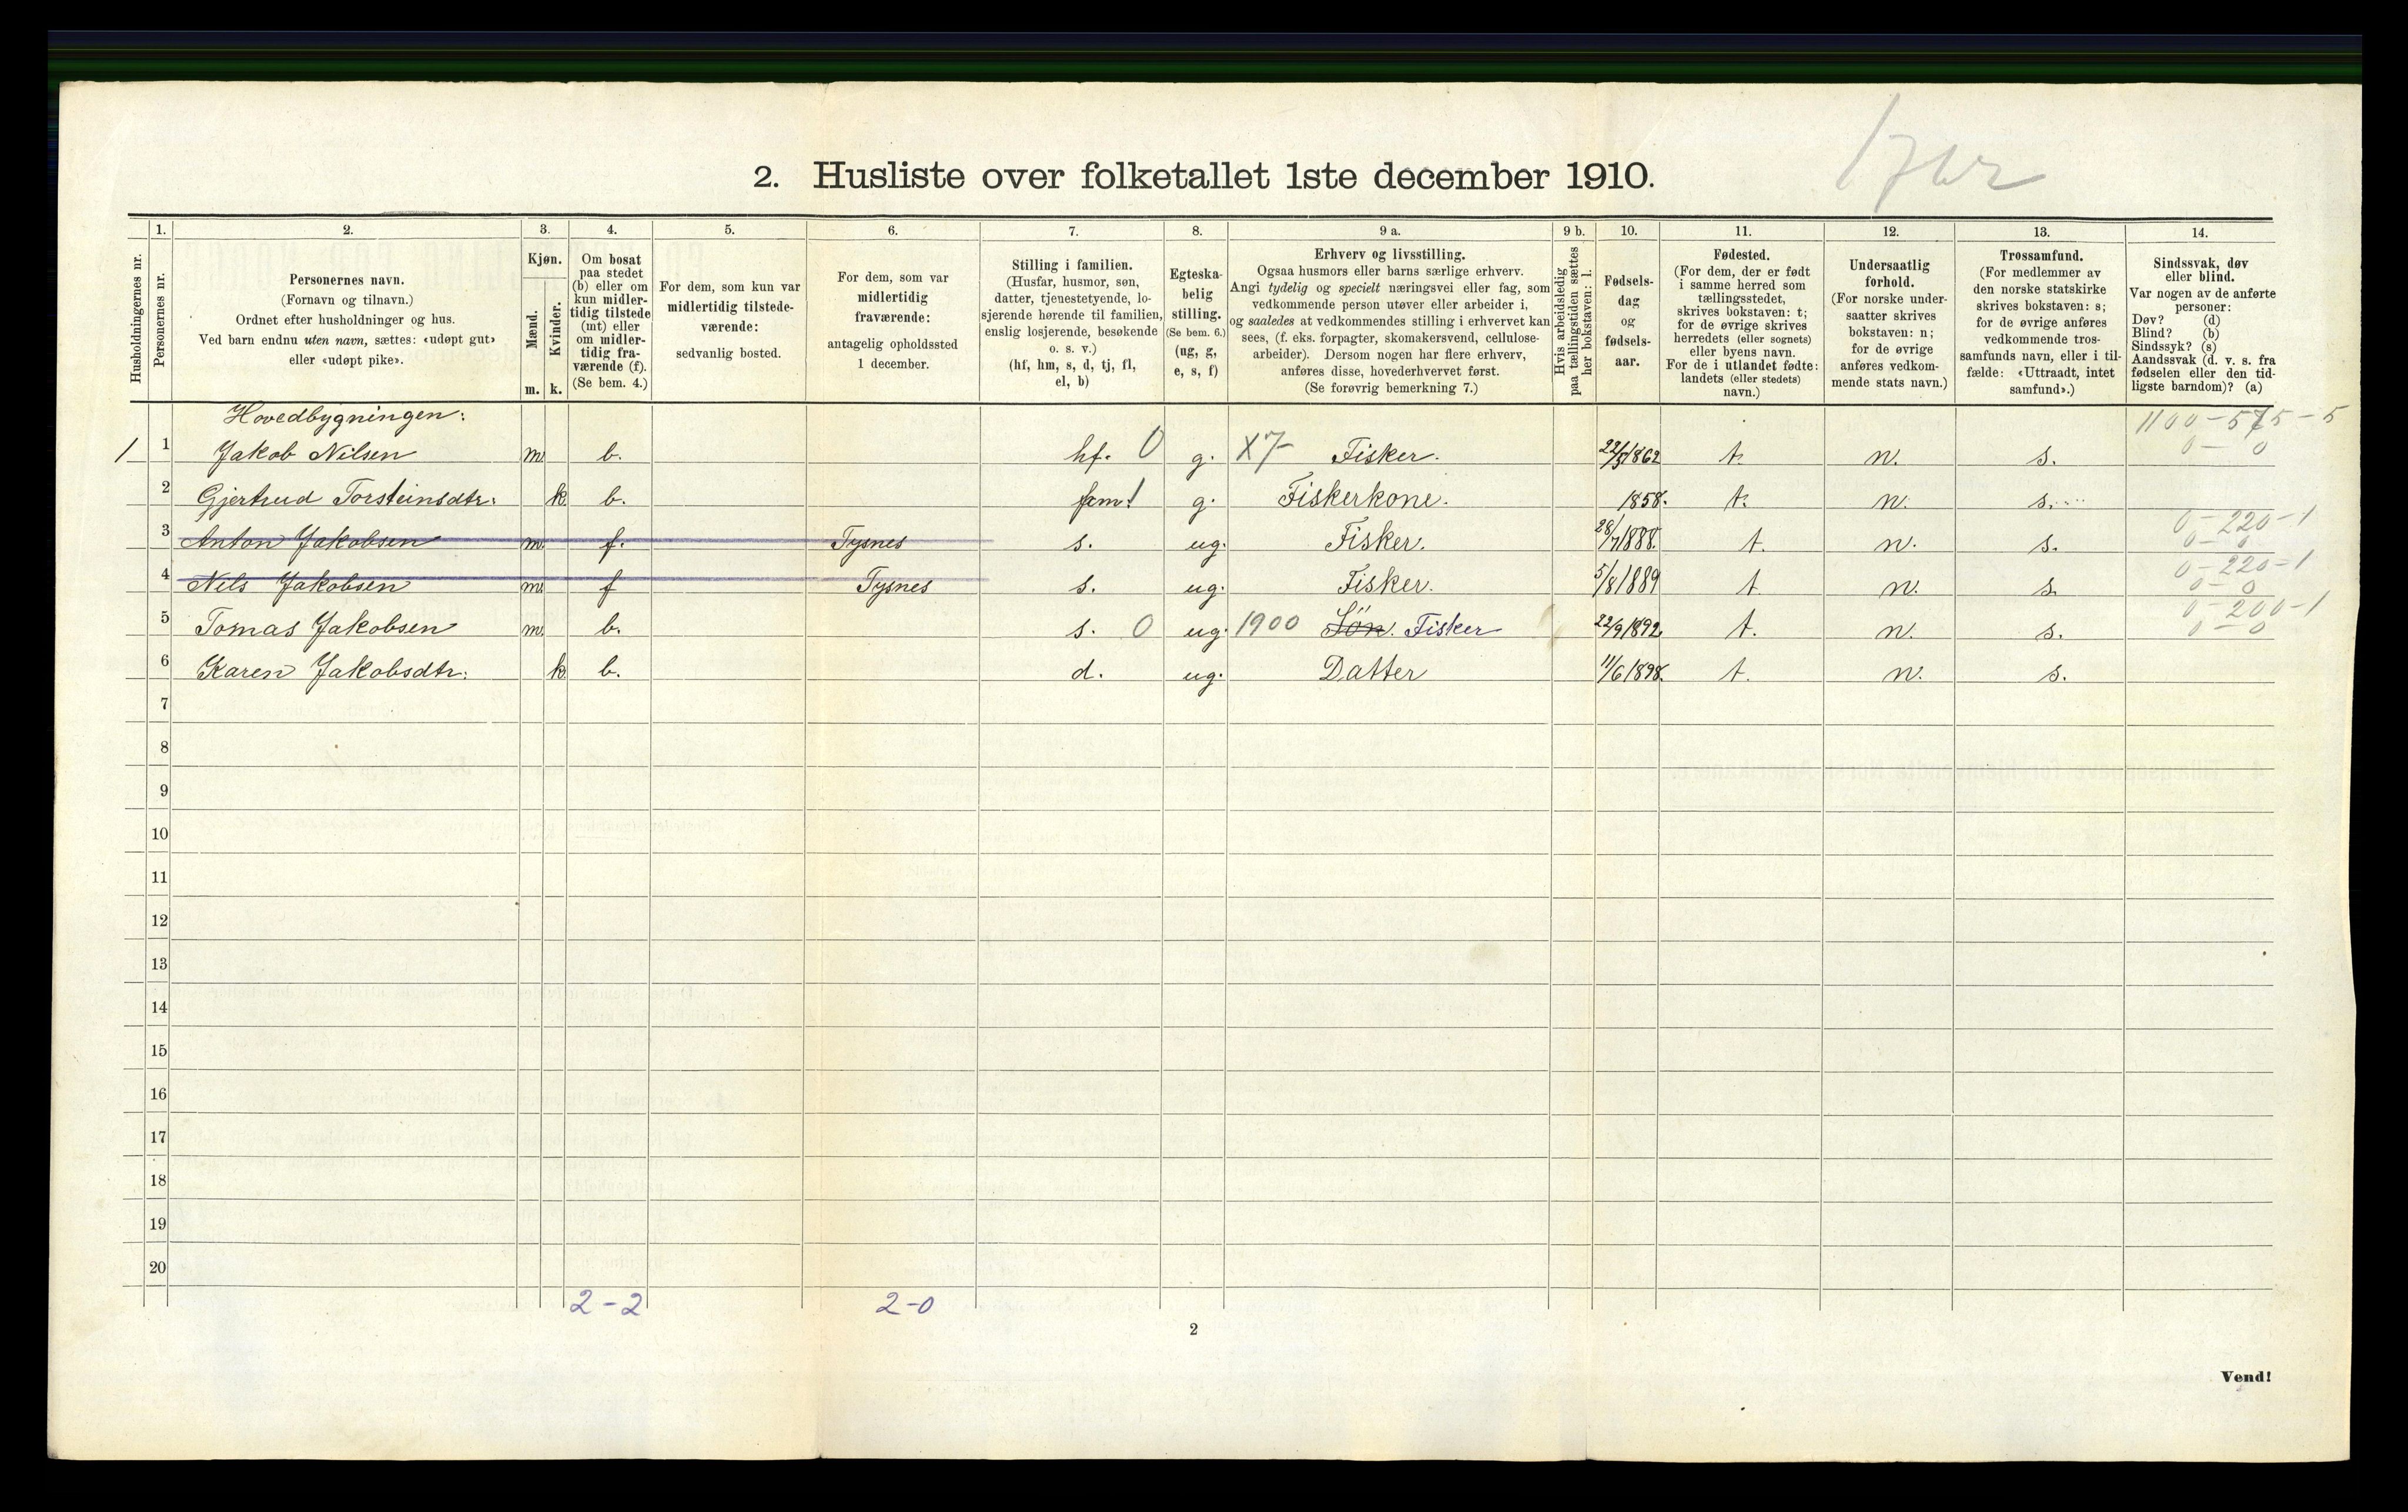 2. Husliste over folketallet 1ste december 1910.
Husholdningernes nr.
1.
Personernes nr.
2.
Personernes navn.
(Fornavn og tilnavn.)
Ordnet efter husholdninger og hus.
Ved barn endnu uten navn, sættes: «udøpt gut»
eller «udøpt pike».
3.
Kjøn.
Mænd.
m.
Kvinder.
k.
4.
Om bosat
paa stedet
(b) eller om
kun midler-
tidig tilstede
(mt) eller
om midler-
tidig fra-
værende (f).
(Se bem. 4.)
5.
For dem, som kun var
midlertidig tilstede-
værende:
sedvanlig bosted.
6.
For dem, som var
midlertidig
fraværende:
antagelig opholdssted
1 december.
7.
Stilling i familien.
(Husfar, husmor, søn,
datter, tjenestetyende, lo-
sjerende hørende til familien,
enslig losjerende, besøkende
o. s. v.)
(hf, hm, s, d, tj, fl,
el, b)
8.
Egteska-
belig
stilling.
(Se bem. 6.)
(ug, g,
e, s, f)
9 a.
Erhverv og livsstilling.
Ogsaa husmors eller barns særlige erhverv.
Angi tydelig og specielt næringsvei eller fag, som
vedkommende person utøver eller arbeider i,
og saaledes at vedkommendes stilling i erhvervet kan
sees, (f. eks. forpagter, skomakersvend, cellulose-
arbeider). Dersom nogen har flere erhverv,
anføres disse, hovederhvervet først.
(Se forøvrig bemerkning 7.)
9 b.
Hvis arbeidsledig
paa tællingstiden sættes
her bokstaven: l.
10.
Fødsels-
dag
og
fødsels-
aar.
11.
Fødested.
(For dem, der er født
i samme herred som
tællingsstedet,
skrives bokstaven: t;
for de øvrige skrives
herredets (eller sognets)
eller byens navn.
For de i utlandet fødte:
landets (eller stedets)
navn.)
12.
Undersaatlig
forhold.
(For norske under-
saatter skrives
bokstaven: n;
for de øvrige
anføres vedkom-
mende stats navn.)
13.
Trossamfund.
(For medlemmer av
den norske statskirke
skrives bokstaven: s;
for de øvrige anføres
vedkommende tros-
samfunds navn, eller i til-
fælde: «Uttraadt, intet
samfund».)
14.
Sindssvak, døv
eller blind.
Var nogen av de anførte
personer:
Døv? (d)
Blind? (b)
Sindssyk? (s)
Aandssvak (d. v. s. fra
fødselen eller den tid-
ligste barndom)? (a)
Hovedbygningen:
1100 - 575 - 5
1 1 Jakob Nilsen m. b. hf. 0 g. X7- Fisker. 22/5 1862 t. n. s. 0 - 0
2 Gjertrud Torsteinsdtr: k. b. g. Fiskerkone. 1858. t. n. s.
0 - 220 - 1
3 Anton Jakobsen m. f. Tysnes s. ug. Fisker. 28/7 1888. t. n. s. 0 - 0
0 - 220 - 1
4 Nils Jakobsen m. f Tysnes s. ug. Fisker. 5/8 1889 t. n. s. 0 - 0
0 - 200 - 1
5 Tomas Jakobsen m. b. s. 0 ug. 1900 Søn. Fisker 22/9 1892. t. n. s. 0 - 0
6 Karen Jakobsdtr: k. b. d. ug. Datter 11/6 1898. t. n. s.
7
8
9
10
11
12
13
14
15
16
17
18
19
20
2-2 2-0
2
Vend!